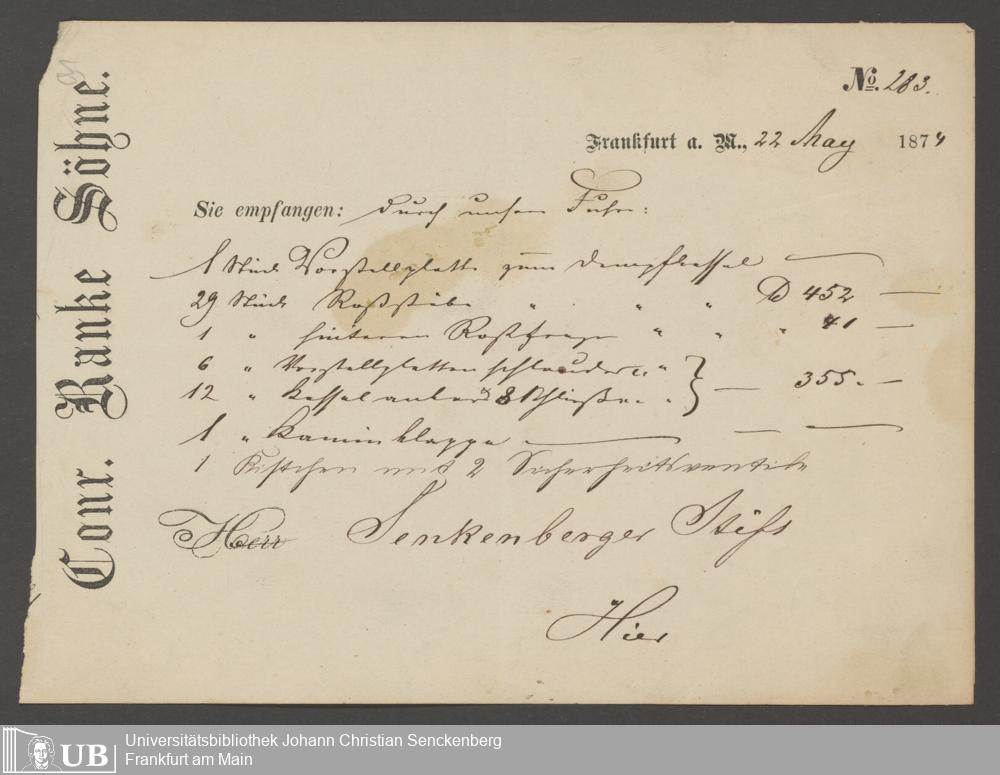 Conr. Ranke Söhne.
No. 283.
Frankfurt a. M., 22 May 1874
Sie empfangen: durch unsere Fuhre:
1 Stück Vorstellplatte zum Dampfkessel —
29 Stück Roststäbe " " " ℔ 452 —
1 " hinteren " " " 41 —
6 " Vorstellplatten " } — 355. —
12 " Kesselanker 8 Schließen "
1 " Kaminklappe — — —
1 Kistchen mit 2 Sicherheitsventile
Herr Senkenberger Stift
Hier
UB
Universitätsbibliothek Johann Christian Senckenberg
Frankfurt am Main